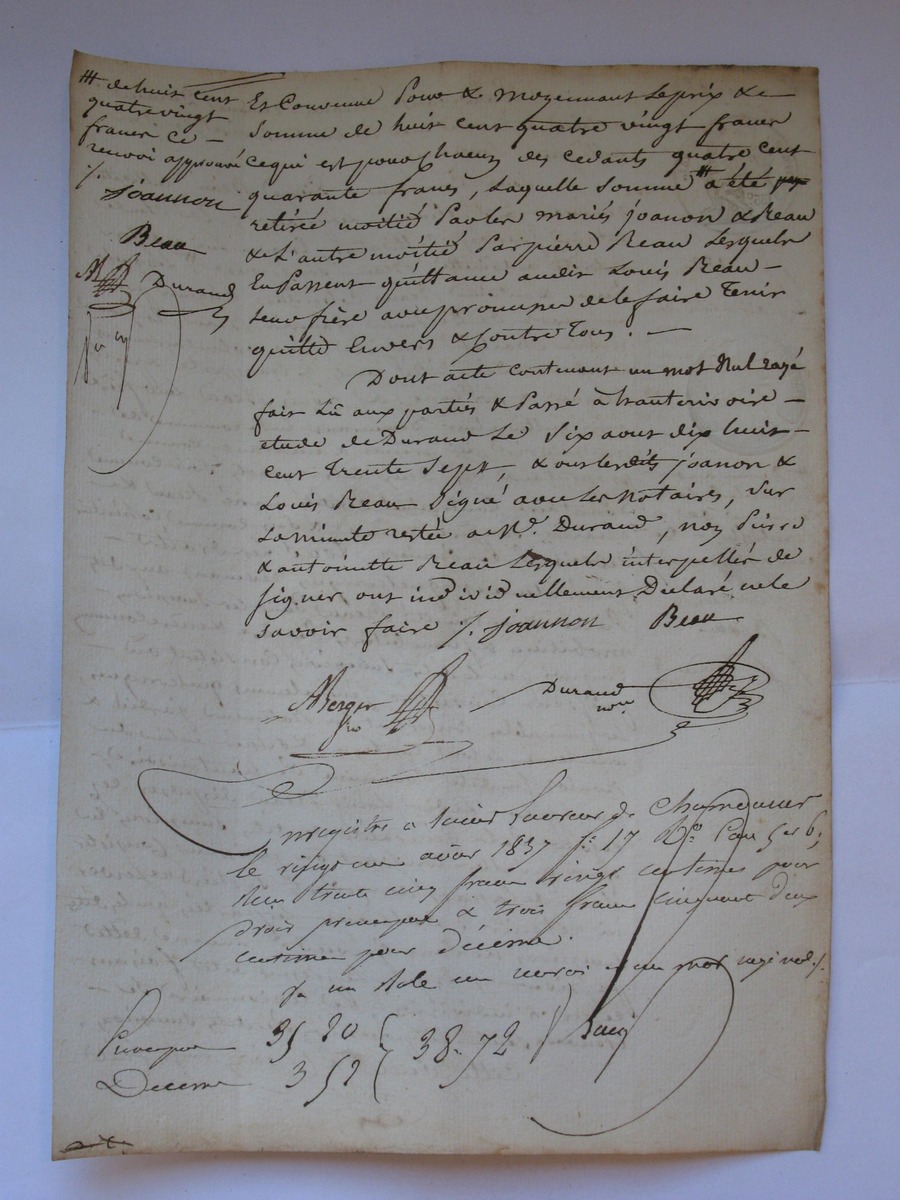 de huit cent
quatre vingt
francs ce –
renvoi approuvé
Joannon
Beau
Durand
Est Convenue Pour & moyennant le prix & –
somme de huit cent quatre vingt francs
ce qui est pour chacun des cedants quatre cent
quarante francs, laquelle somme a été
retirée moitié Par les mariés joanon & Beau
& L'autre moitié Par pierre Beau Lesquels
En Passent quittance audit Louis Beau –
leur frère avec promesse de le faire Tenir
quitte Envers & contre Tous. –
Dont acte contenant un mot Nul rayé
fait Lû aux parties & Passé à hauterivoire –
etude de Durand Le Six aout dix huit –
cent Trente Sept, & ont lesdits joanon &
Louis Beau Signé avec Les Notaires, Sur
La minute restée a Me. Durand, non Pierre
& antoinette Beau Lesquels interpellés de
signer ont individuellement Declaré ne le
savoir faire ./. Joannon Beau
Berger Durand
nre
Enregistré a Saint Laurent de Chamousset
le aout 1837 fo. 17 Ro. Case 5 et 6;
reçu trente cinq francs vingt centimes pour
droit principal & trois francs cinquante deux
centimes pour décime.
Il y a un rôle un renvoi & un mot rayé nul ./.
Principal 35 20
38. 72
Décime 3 52